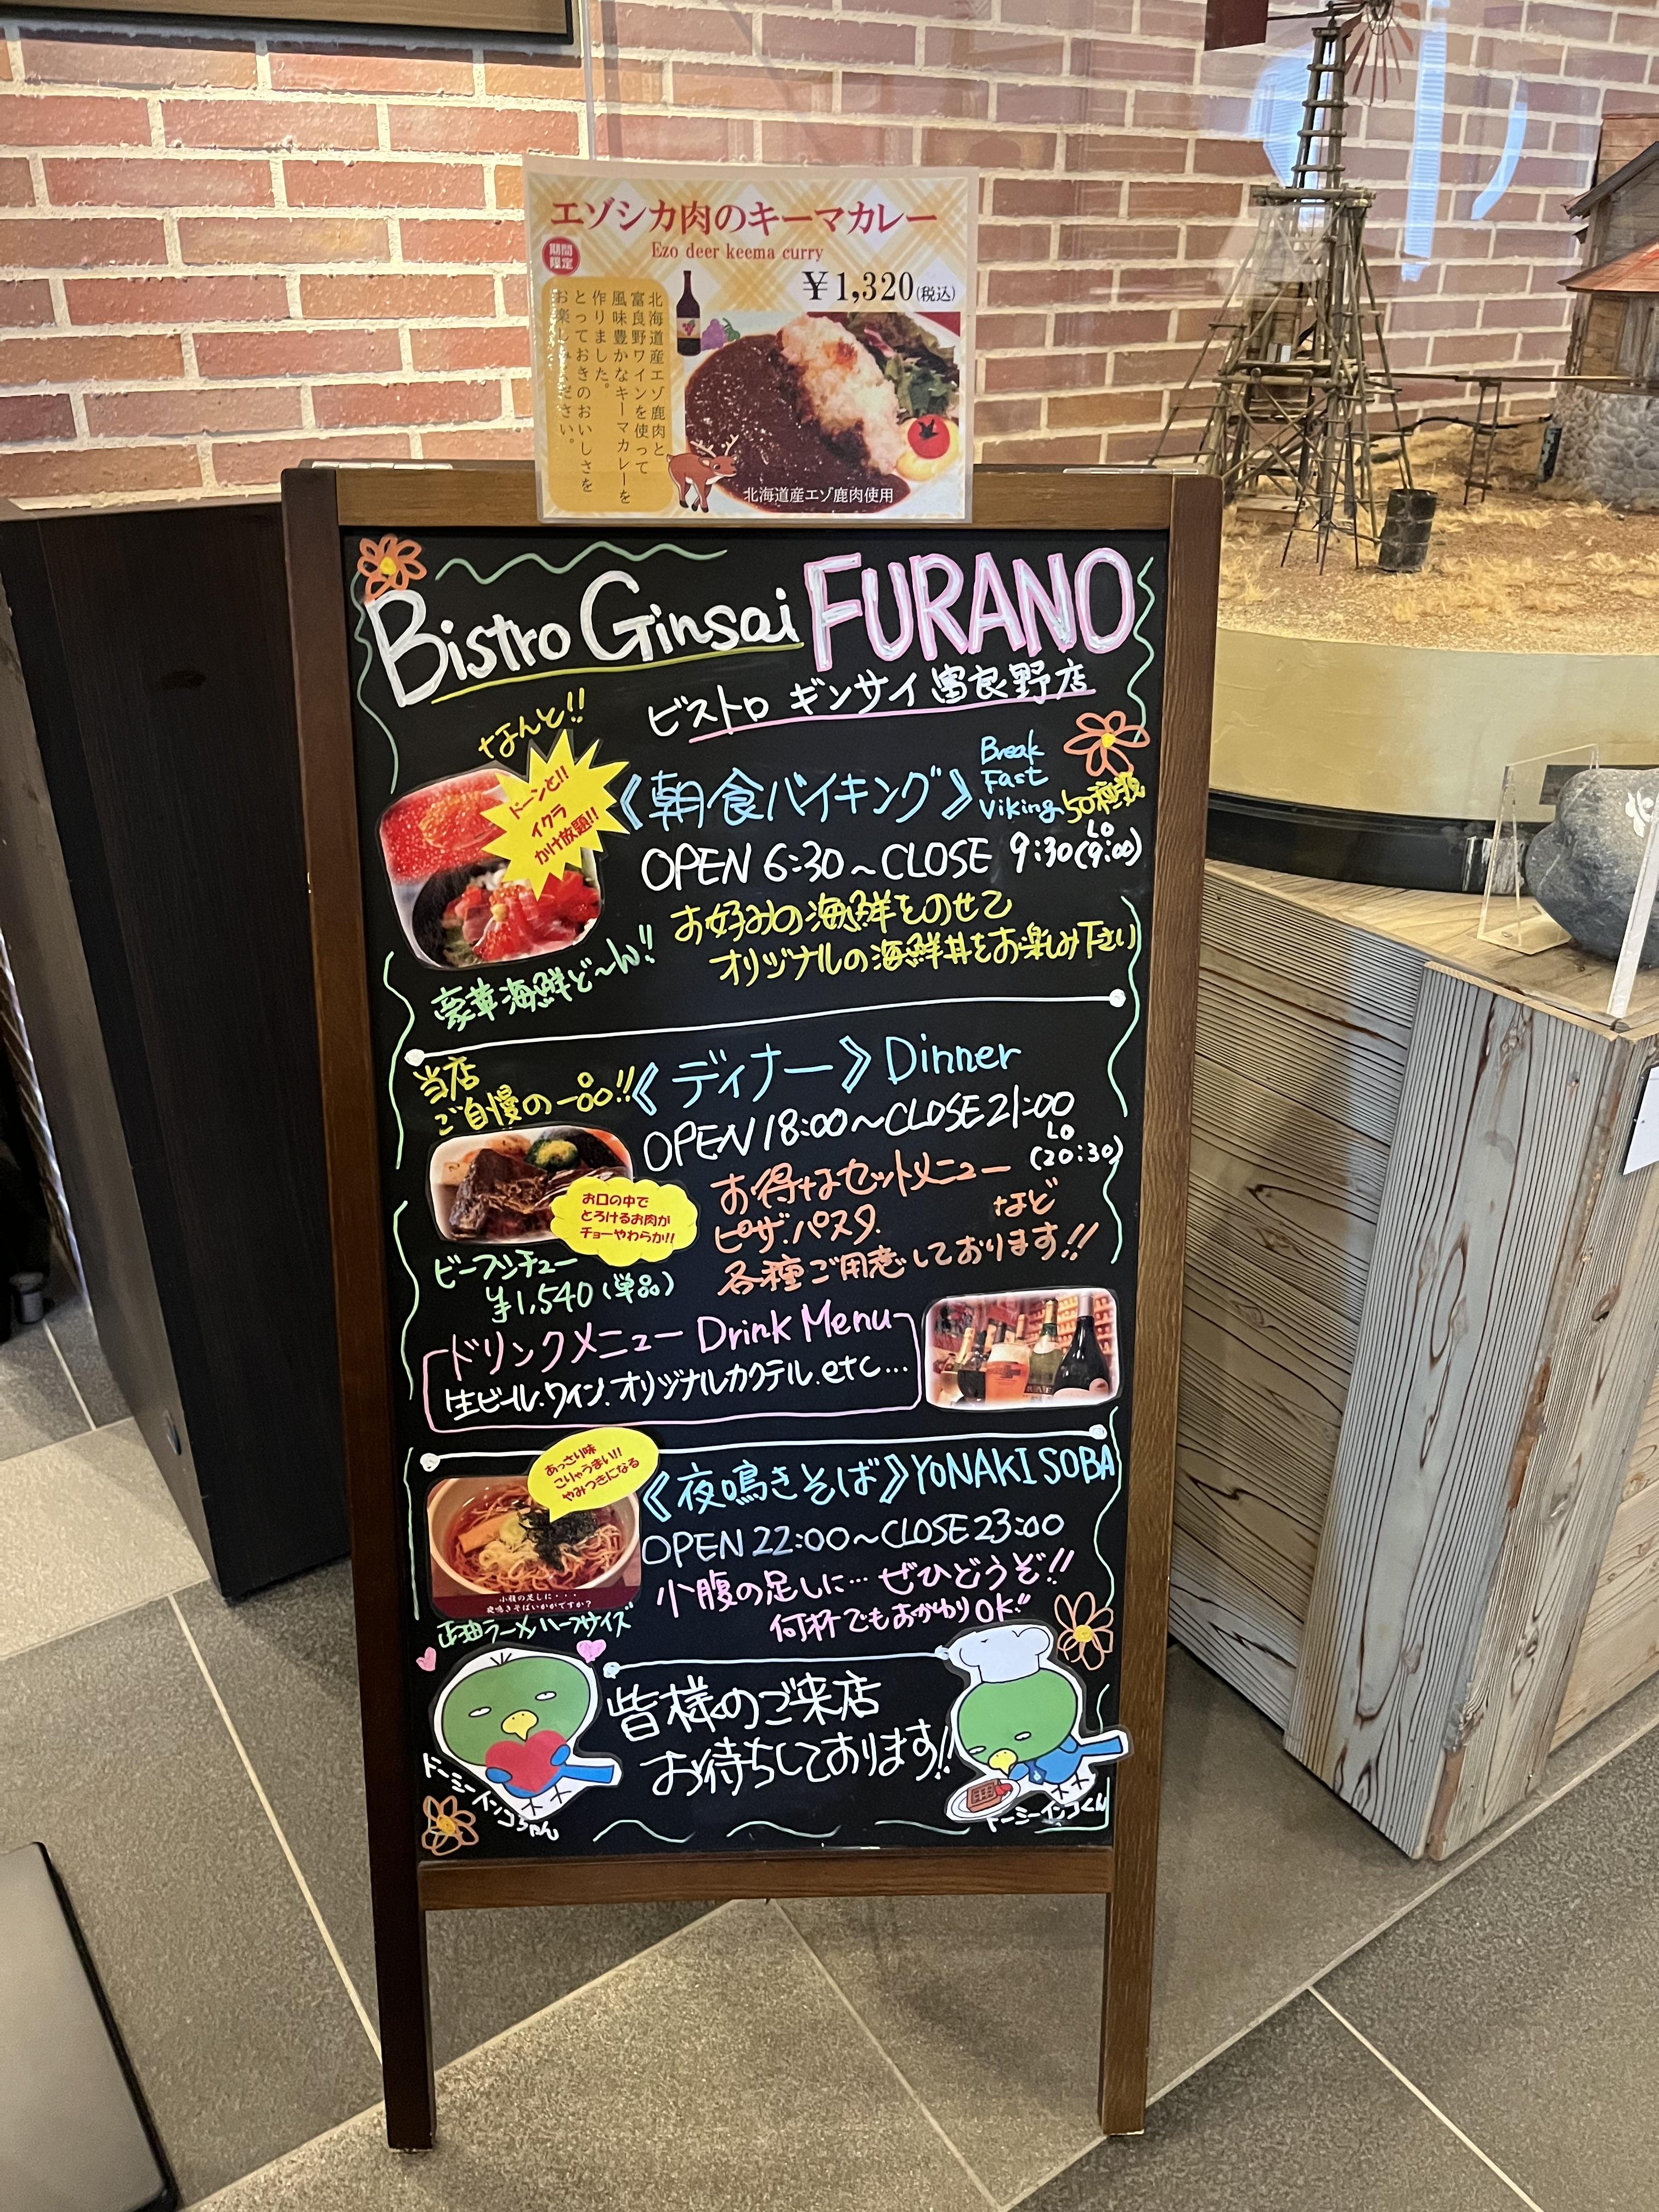 エゾシカ肉のキーマカレー
Ezo deer keema curry
期間
限定
¥1,320(税込)
北海道産エゾ鹿肉と
富良野ワインを使って
風味豊かなキーマカレーを
作りました。
とっておきのおいしさを
お楽しみください。
北海道産エゾ鹿肉使用
Bistro Ginsai FURANO
ビストロ ギンサイ 富良野店
なんと!!
ドーンと!!
イクラ
かけ放題!!
《朝食バイキング》
Break
Fast
Viking 50種
OPEN 6:30~CLOSE 9:30(LO 9:00)
お好みの海鮮をのせて
オリジナルの海鮮丼をお楽しみ下さい
豪華海鮮ど〜ん!!
当店
ご自慢の一品!!
《ディナー》Dinner
OPEN 18:00~CLOSE 21:00
LO
(20:30)
お口の中で
とろけるお肉が
チョーやわらか!!
ビーフシチュー
¥1,540(単品)
お得なセットメニュー
ピザ.パスタ. など
各種ご用意しております!!
ドリンクメニュー Drink Menu
生ビール.ワイン.オリジナルカクテル.etc...
あっさり味
こりゃうまい!!
やみつきになる
《夜鳴きそば》YONAKI SOBA
OPEN 22:00~CLOSE 23:00
小腹の足しに… ぜひどうぞ!!
何杯でもおかわりOK!!
小腹の足しに・・・
夜鳴きそばいかがですか?
ラーメンハーフサイズ
皆様のご来店
お待ちしております!!
ドーミーインコちゃん
ドーミーインコくん